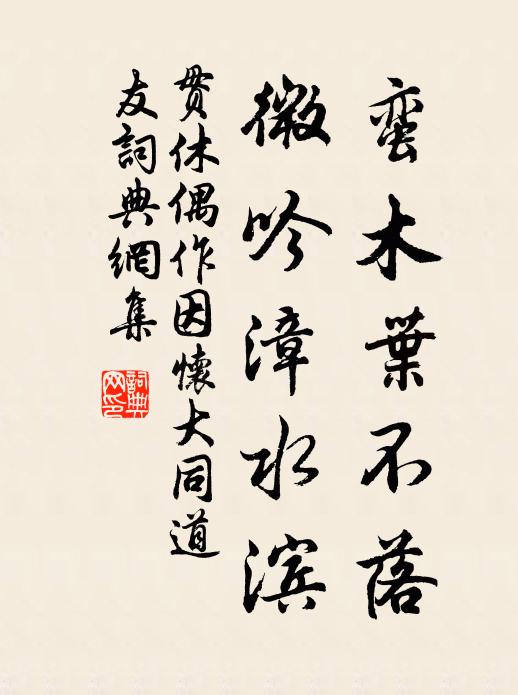 蛮木葉不落
微吟漳水滨
貫休偶作因懷大同道
友詞典網集
詞典
网印